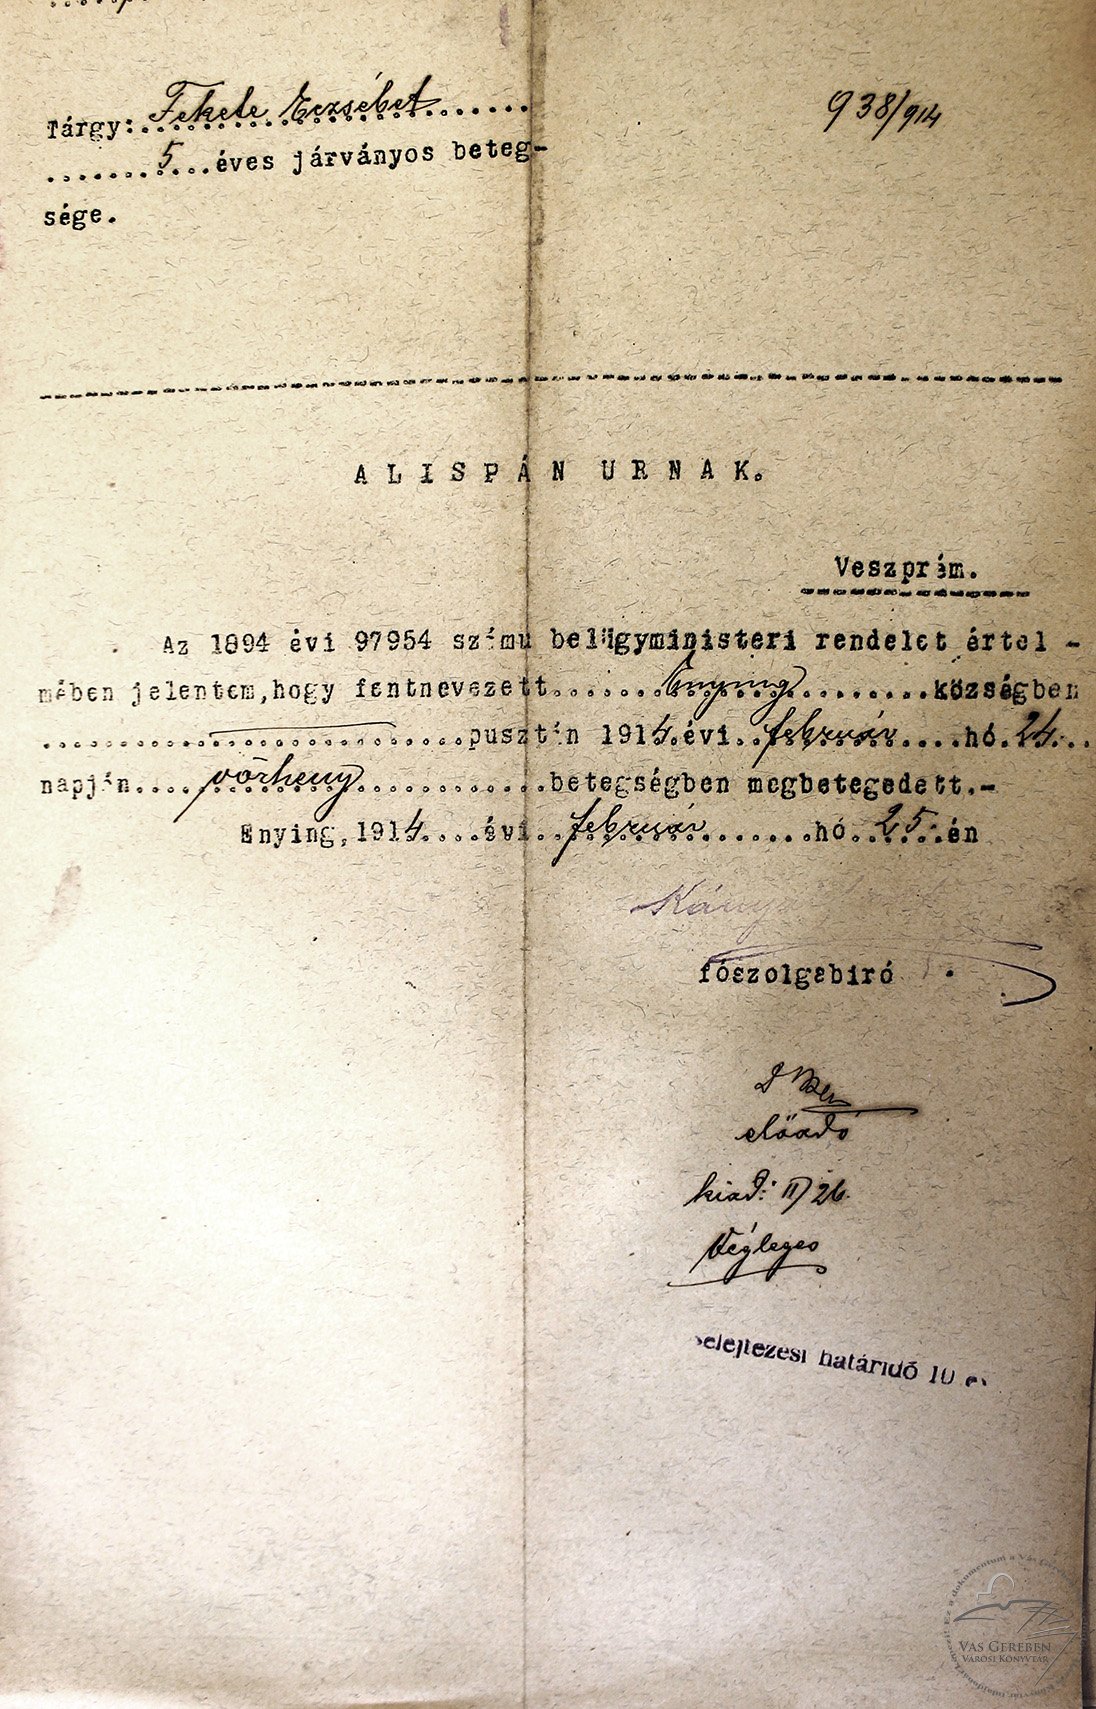 938/914
Tárgy: Fekete Erzsébet
5 éves járványos beteg-
sége.
ALISPÁN URNAK.
Veszprém.
Az 1894 évi 97954 számu belügyministeri rendelet értel-
mében jelentem, hogy fentnevezett Enying községben
pusztán 1914 évi február hó 24
napján vörheny betegségben megbetegedett.-
Enying, 1914 évi február hó 25 én
Kánya
főszolgabiró
előadó
kiad: II/26.
Végleges
selejtezési határidő 10 é
VAS GEREBEN
VÁROSI KÖNYVTÁR